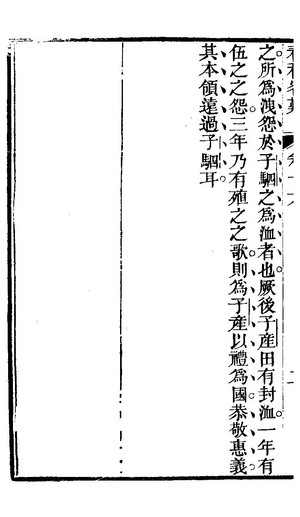 之所為洩怨於子駟之為洫者也厥後子產田有封洫一年有
伍之之怨三年乃有殖之之歌則為子產以禮為國恭敬惠義
其本領遠過子駟耳